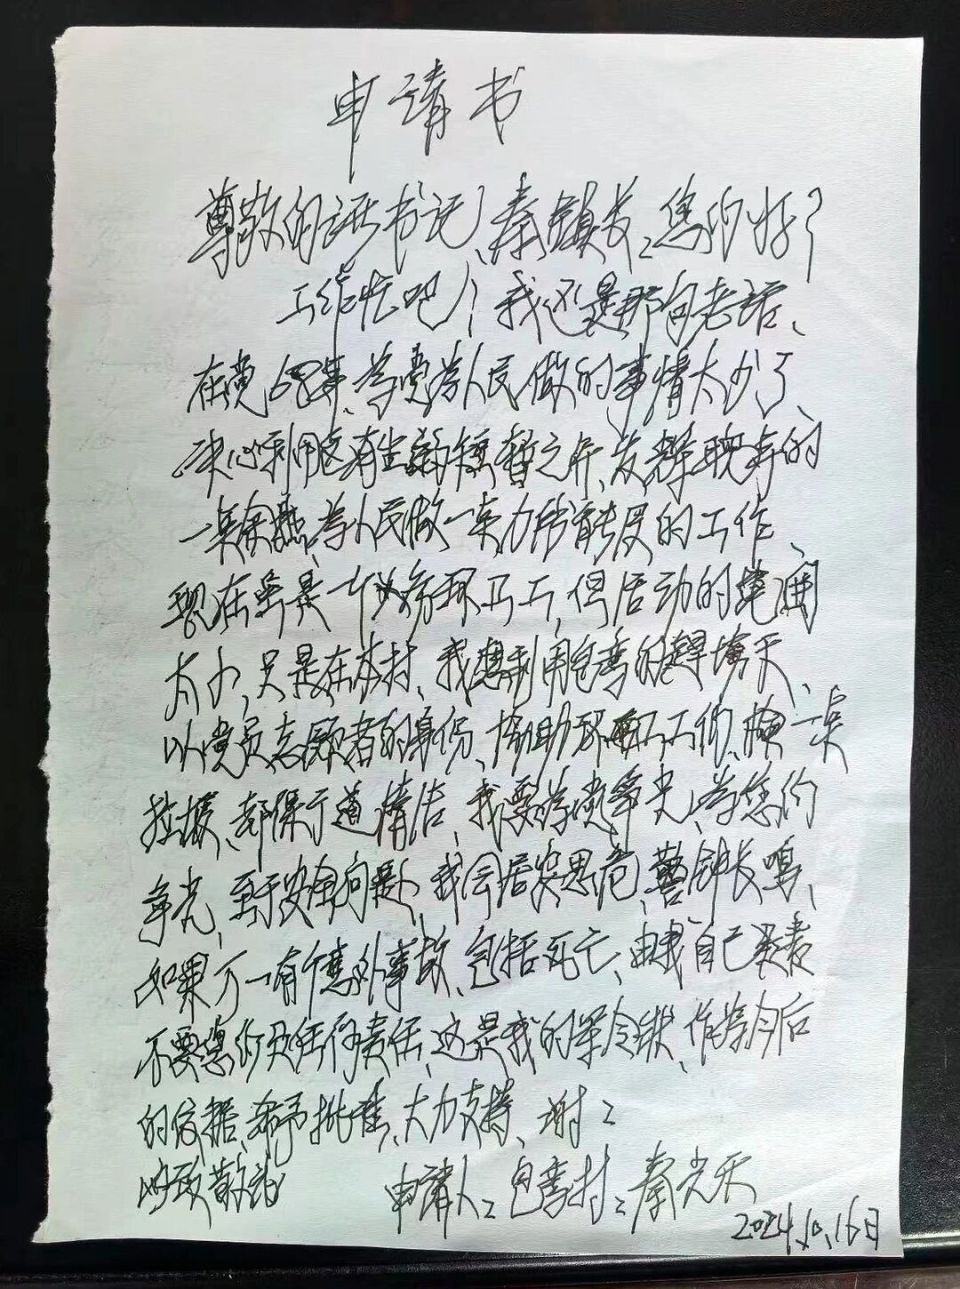 申请书
尊敬的书记、秦镇长：您们好？
工作忙吧！我还是那句老话、
在党68年、为党为人民做的事情太少了、
决心利用有生的短暂之年、发挥晚年的
一点余热、为人民做一点力所能及的工作、
现在虽是一个义务环卫工，但活动的范围
太小，只是在本村、我想利用包弯的赶场天、
以党员志愿者的身份、协助环卫工人们、捡一点
垃圾、确保干道清洁、我要为党争光、为您们
争光，至于安全问题、我会居安思危、警钟长鸣、
如果万一有个意外事故、包括死亡、由我自己负责
不要您们负任何责任、这是我的军令状、作为今后
的依据、希予批准、大力支持、谢：
此致敬礼
申请人：包弯村：秦光天
2024.10.16日